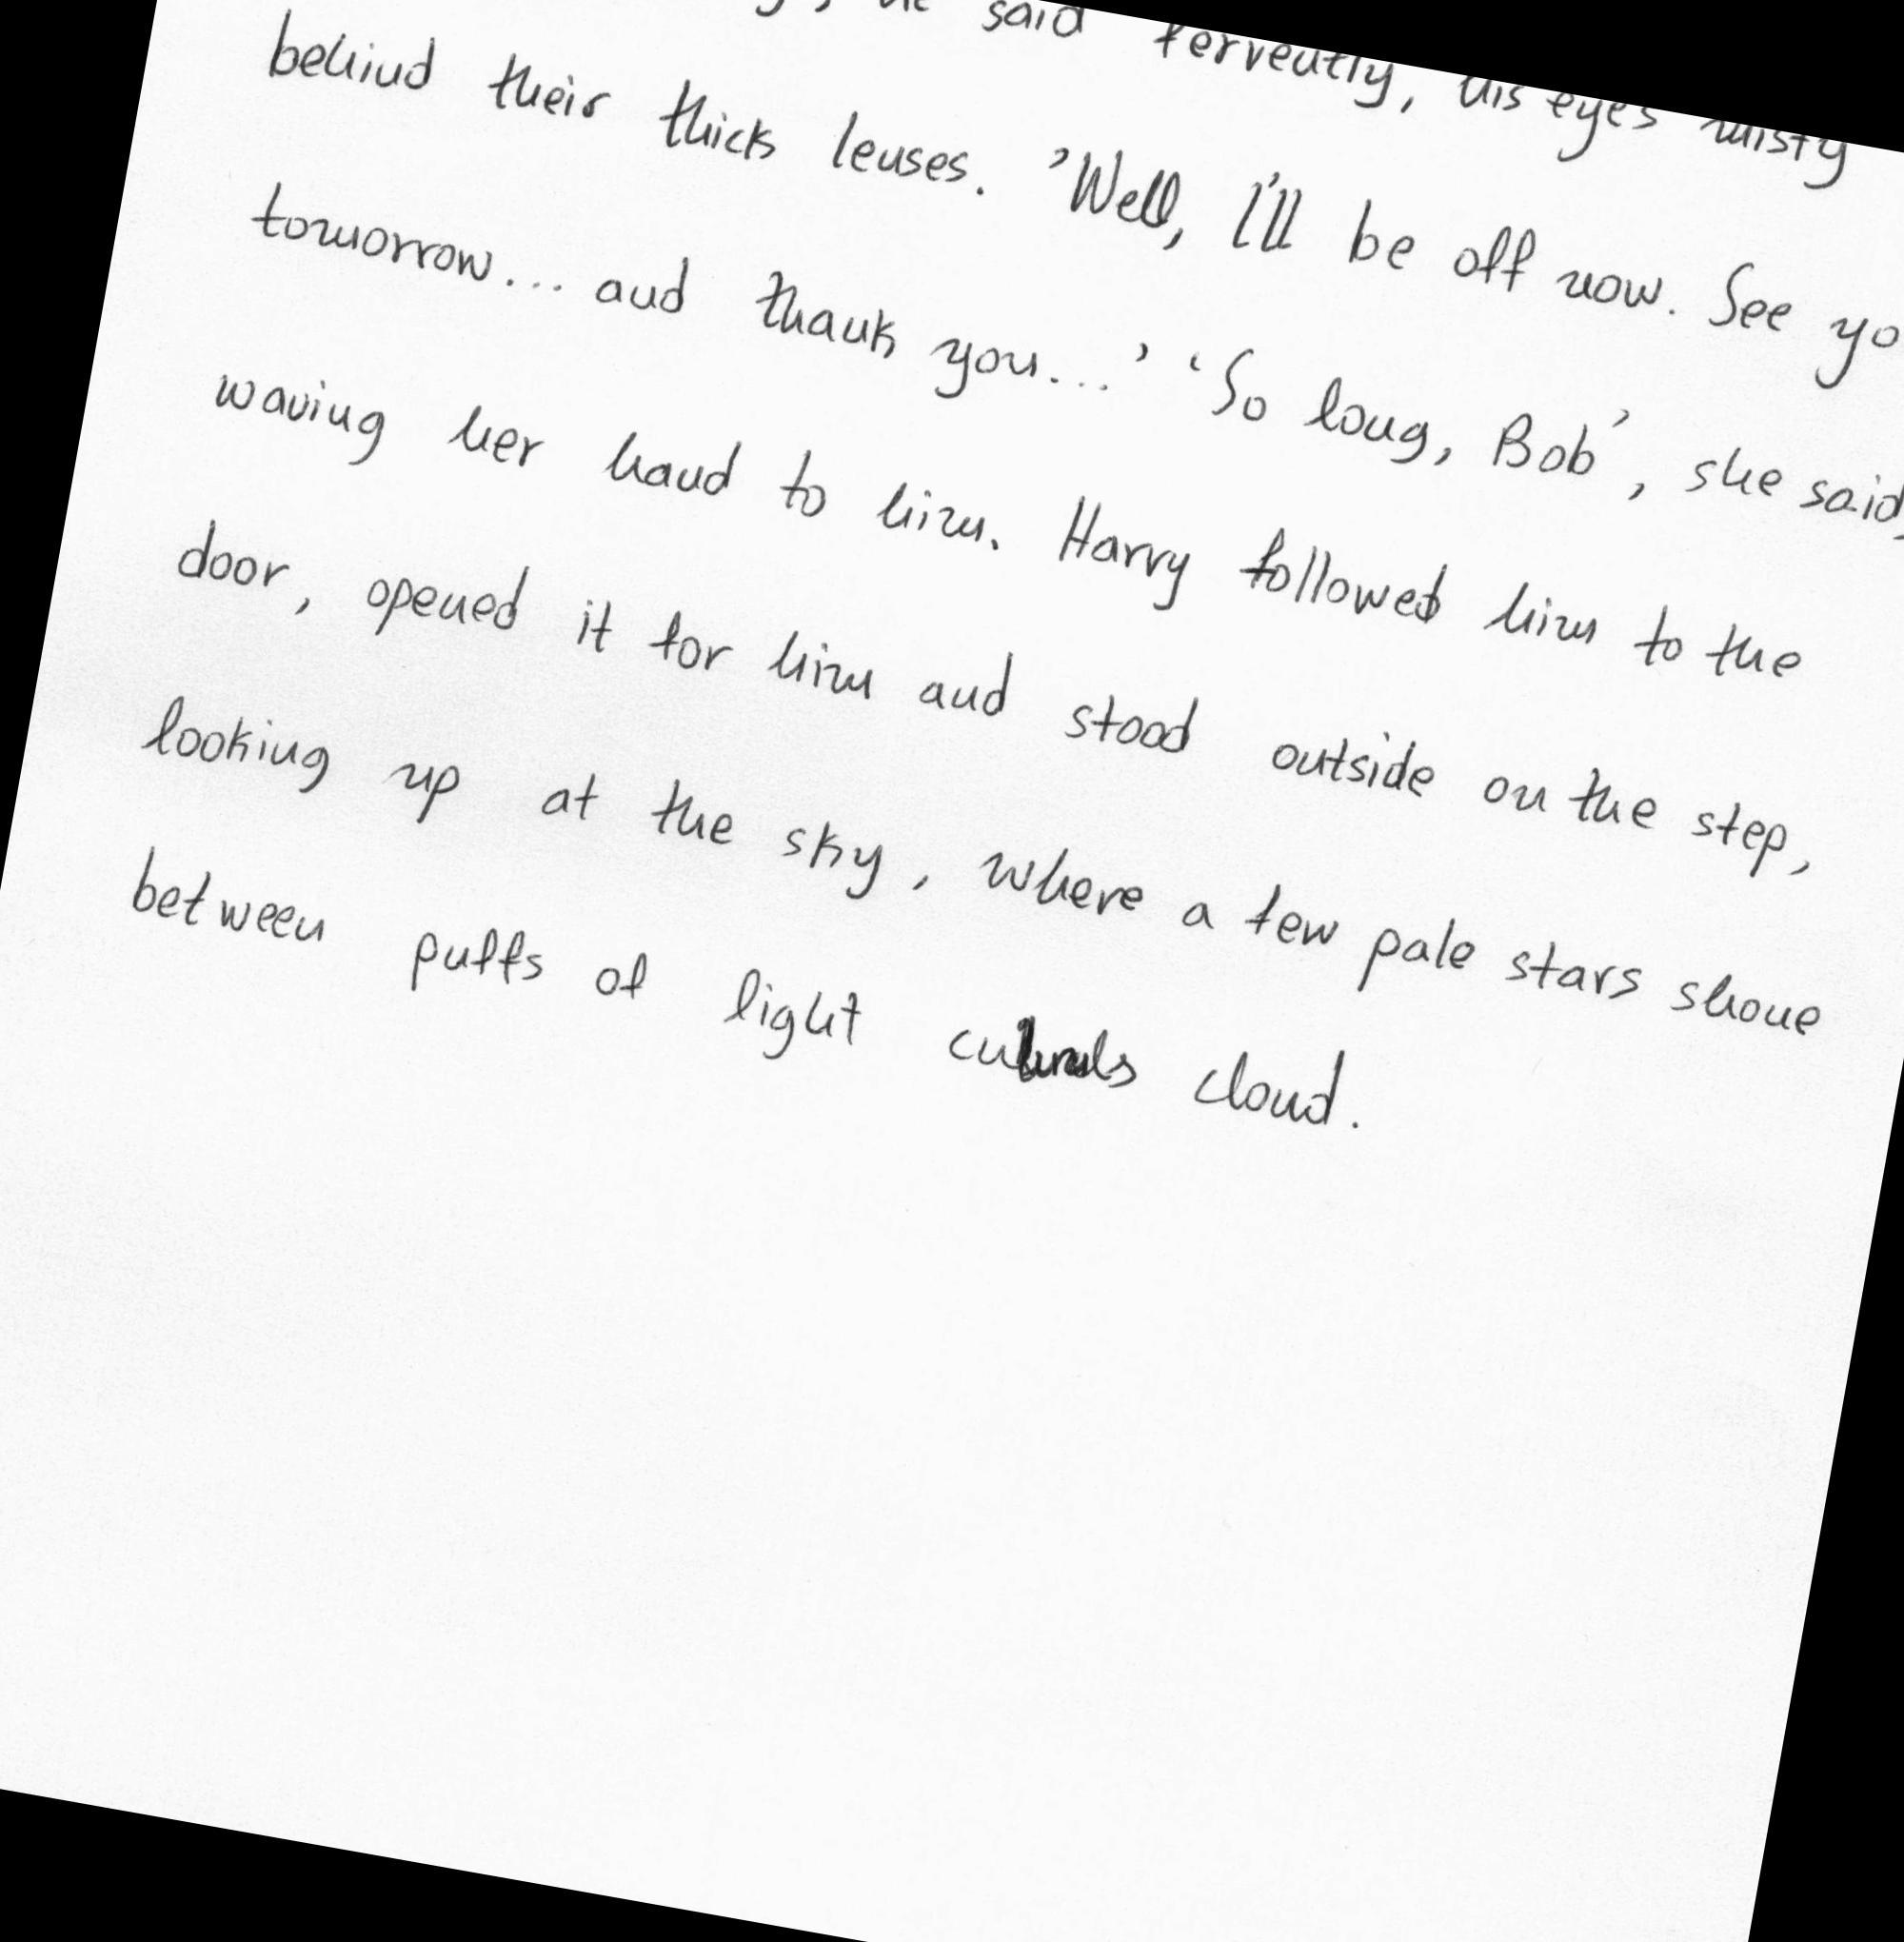 said fervently, his eyes misty
behind their thick lenses. 'Well, I'll be off now. See yo
tomorrow... and thank you...' 'So long, Bob', she said,
waving her hand to him. Harry followed him to the
door, opened it for him and stood outside on the step,
looking up at the sky, where a few pale stars shone
between puffs of light cloud.